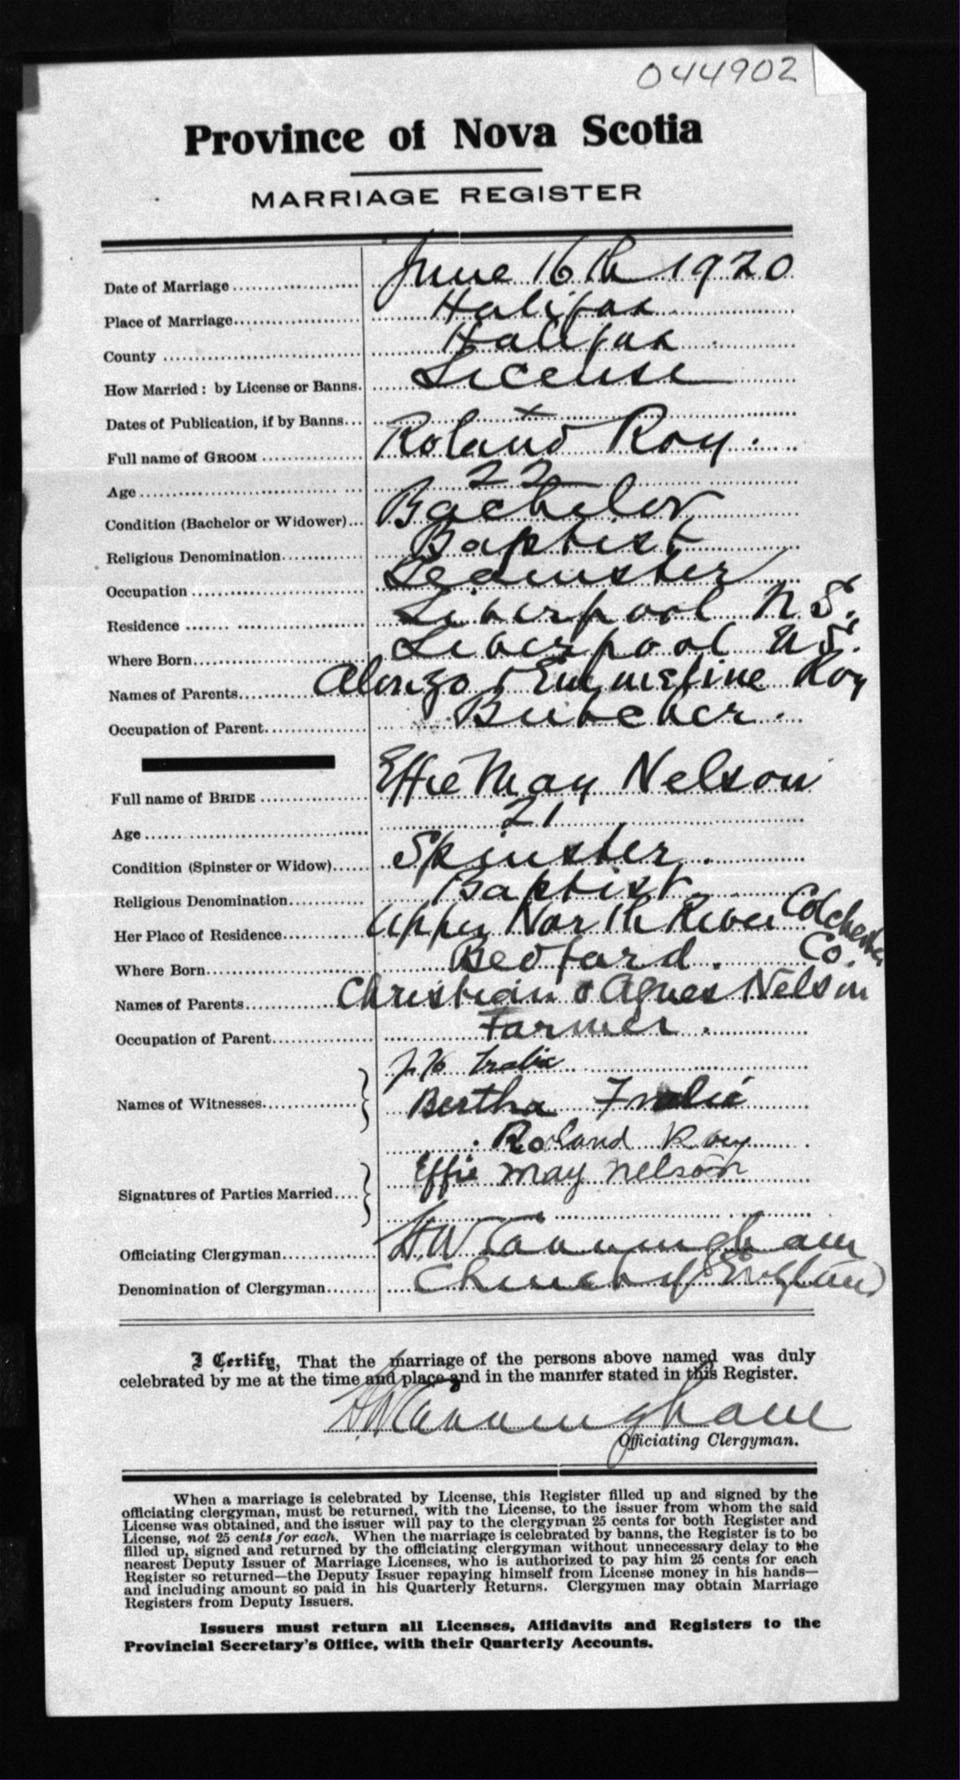 044902
Province of Nova Scotia
MARRIAGE REGISTER
Date of Marriage June 16th 1920
Place of Marriage Halifax
County Halifax
How Married: by License or Banns. License
Dates of Publication, if by Banns. x
Full name of GROOM Roland Roy.
Age 22
Condition (Bachelor or Widower) Bachelor
Religious Denomination Baptist
Occupation Teamster
Residence Liverpool N.S.
Where Born Liverpool N.S.
Names of Parents Alonzo & Emmeline Roy
Occupation of Parent Butcher.
Full name of BRIDE Effie May Nelson
Age 21
Condition (Spinster or Widow) Spinster.
Religious Denomination Baptist.
Her Place of Residence Upper North River Colchester Co.
Where Born Bedford.
Names of Parents Christian & Agnes Nelson
Occupation of Parent Farmer.
Names of Witnesses
Bertha Fralic
Roland Roy
Signatures of Parties Married Effie May Nelson
Officiating Clergyman H W Cunningham
Denomination of Clergyman Church of England
I Certify, That the marriage of the persons above named was duly
celebrated by me at the time and place and in the manner stated in this Register.
H W Cunningham
Officiating Clergyman.
When a marriage is celebrated by License, this Register filled up and signed by the
officiating clergyman, must be returned, with the License, to the issuer from whom the said
License was obtained, and the issuer will pay to the clergyman 25 cents for both Register and
License, not 25 cents for each. When the marriage is celebrated by banns, the Register is to be
filled up, signed and returned by the officiating clergyman without unnecessary delay to the
nearest Deputy Issuer of Marriage Licenses, who is authorized to pay him 25 cents for each
Register so returned—the Deputy Issuer repaying himself from License money in his hands—
and including amount so paid in his Quarterly Returns. Clergymen may obtain Marriage
Registers from Deputy Issuers.
Issuers must return all Licenses, Affidavits and Registers to the
Provincial Secretary's Office, with their Quarterly Accounts.